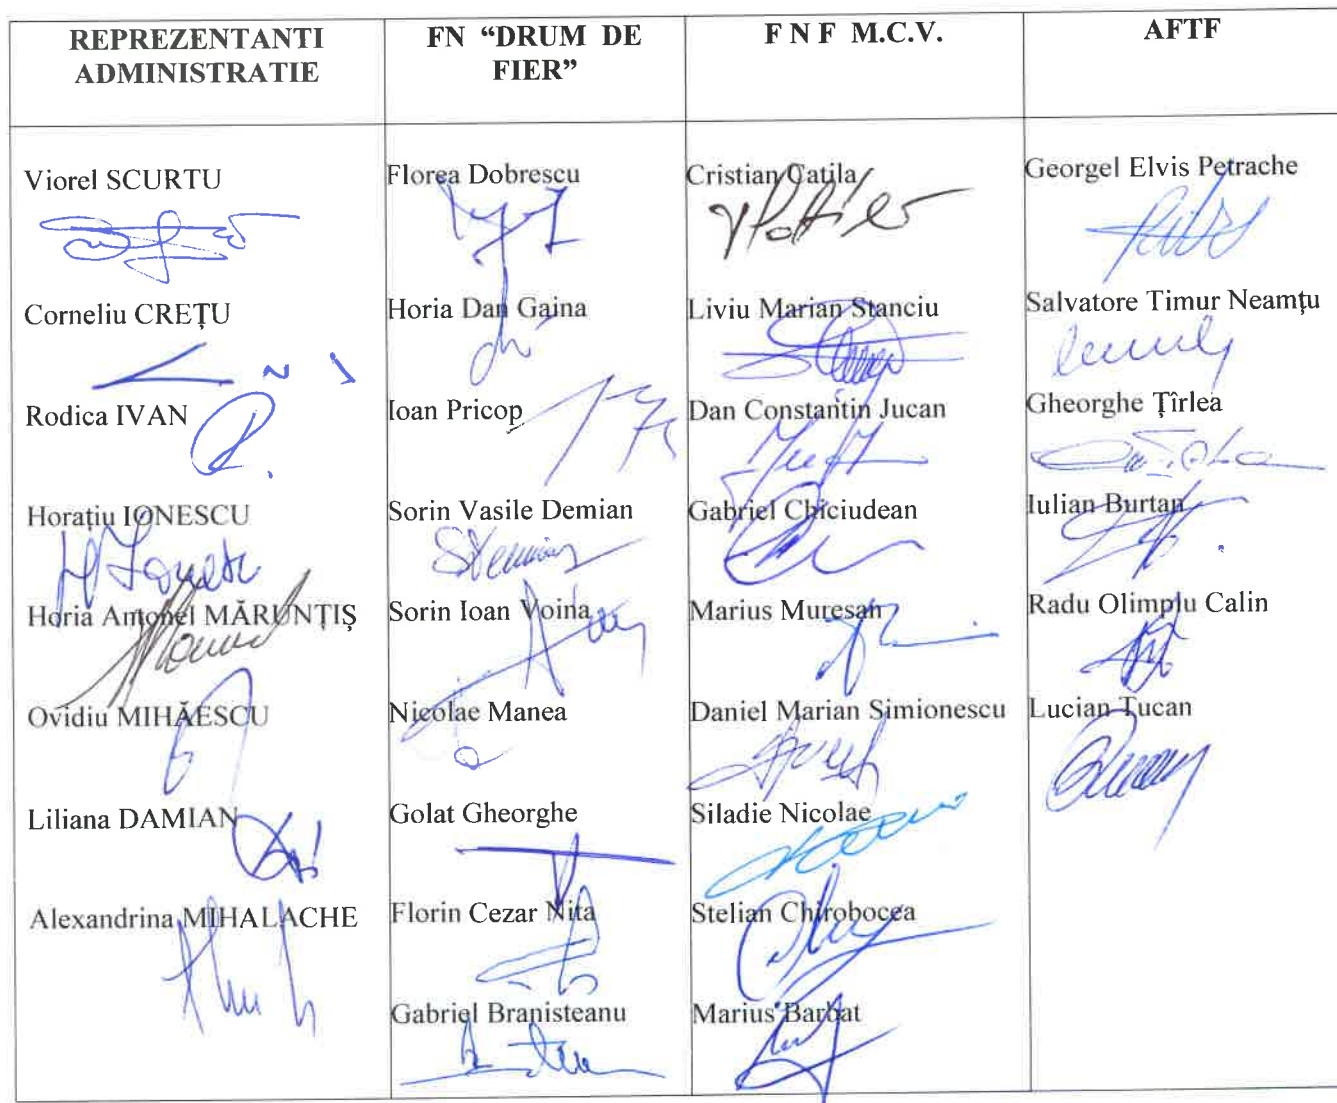 REPREZENTANTI
ADMINISTRATIE
FN “DRUM DE
FIER”
F N F M.C.V.
AFTF
Viorel SCURTU
Florea Dobrescu
Cristian Catila
Georgel Elvis Petrache
Corneliu CREȚU
Horia Dan Gaina
Liviu Marian Stanciu
Salvatore Timur Neamțu
Rodica IVAN
Ioan Pricop
Dan Constantin Jucan
Gheorghe Țîrlea
Horațiu IONESCU
Sorin Vasile Demian
Gabriel Chiciudean
Iulian Burtan
Horia Antonel MĂRUNȚIȘ
Sorin Ioan Voina
Marius Muresan
Radu Olimpiu Calin
Ovidiu MIHĂESCU
Nicolae Manea
Daniel Marian Simionescu
Lucian Tucan
Liliana DAMIAN
Golat Gheorghe
Siladie Nicolae
Alexandrina MIHALACHE
Florin Cezar Nita
Stelian Chirobocea
Gabriel Branisteanu
Marius Barbat